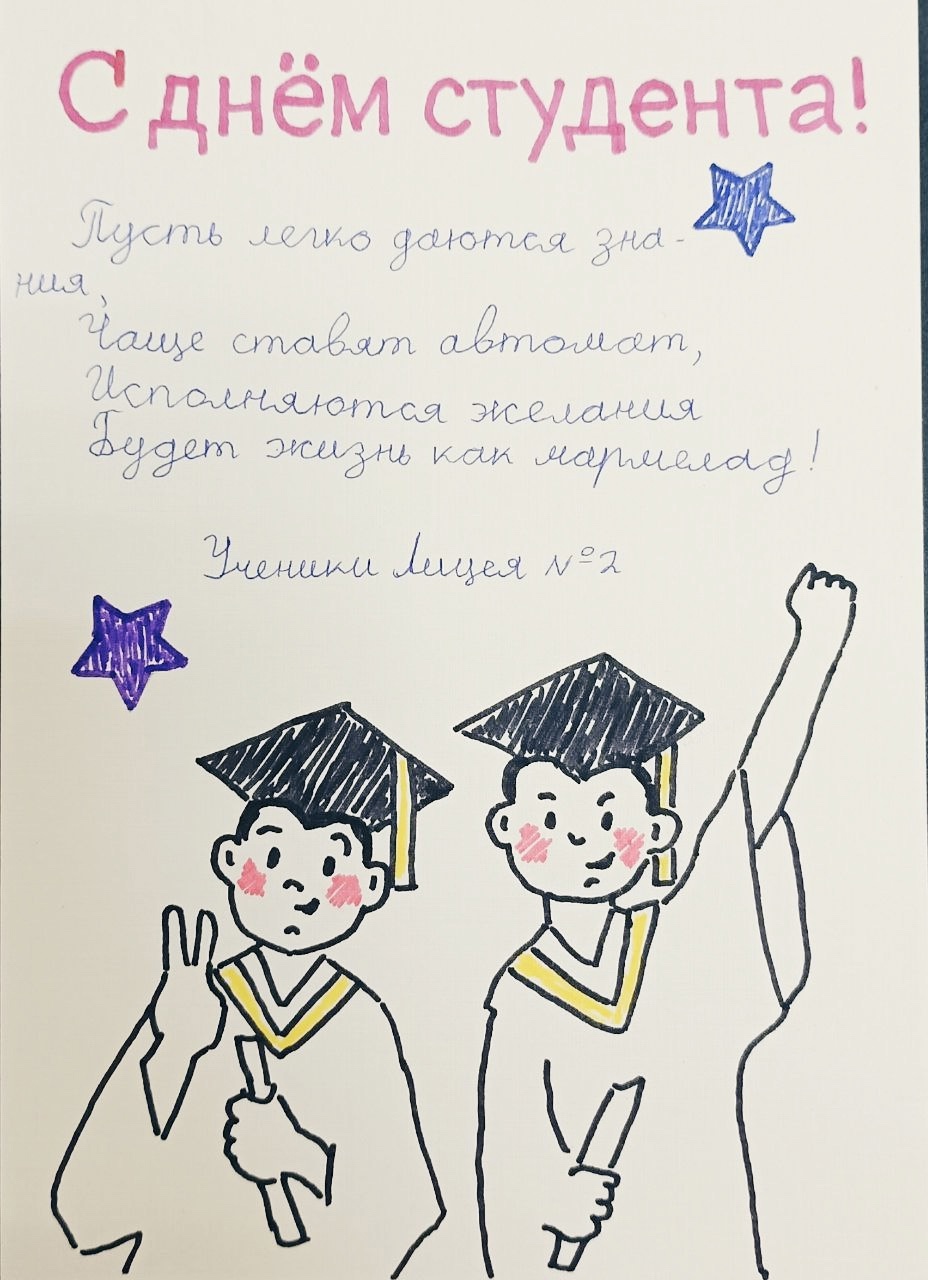 С днём студента!
Пусть легко даются зна-
ния,
Чаще ставят автомат,
Исполняются желания
Будет жизнь как мармелад!
Ученики Лицея №2